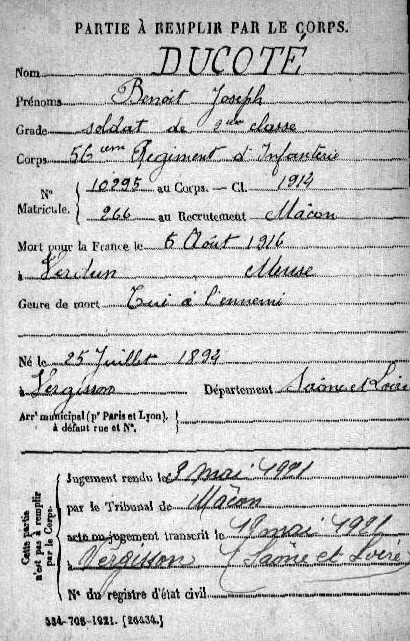 PARTIE À REMPLIR PAR LE CORPS.
Nom DUCOTÉ
Prénoms Benoit Joseph
Grade soldat de 2me classe
Corps 56em Régiment d'Infanterie
N° Matricule. { 10295 au Corps. — Cl. 1914
266 au Recrutement Mâcon
Mort pour la France le 6 Août 1916
à Verdun Meuse
Genre de mort Tué à l'ennemi
Né le 25 Juillet 1894
à Vergisson Département Saône et Loire
Arrt municipal (pr Paris et Lyon), à défaut rue et N°.
Cette partie n'est pas à remplir par le Corps.
Jugement rendu le 3 mai 1921
par le Tribunal de Mâcon
acte ou jugement transcrit le 18 mai 1921
à Vergisson (Saône et Loire)
N° du registre d'état civil
534-708-1921. [26434.]